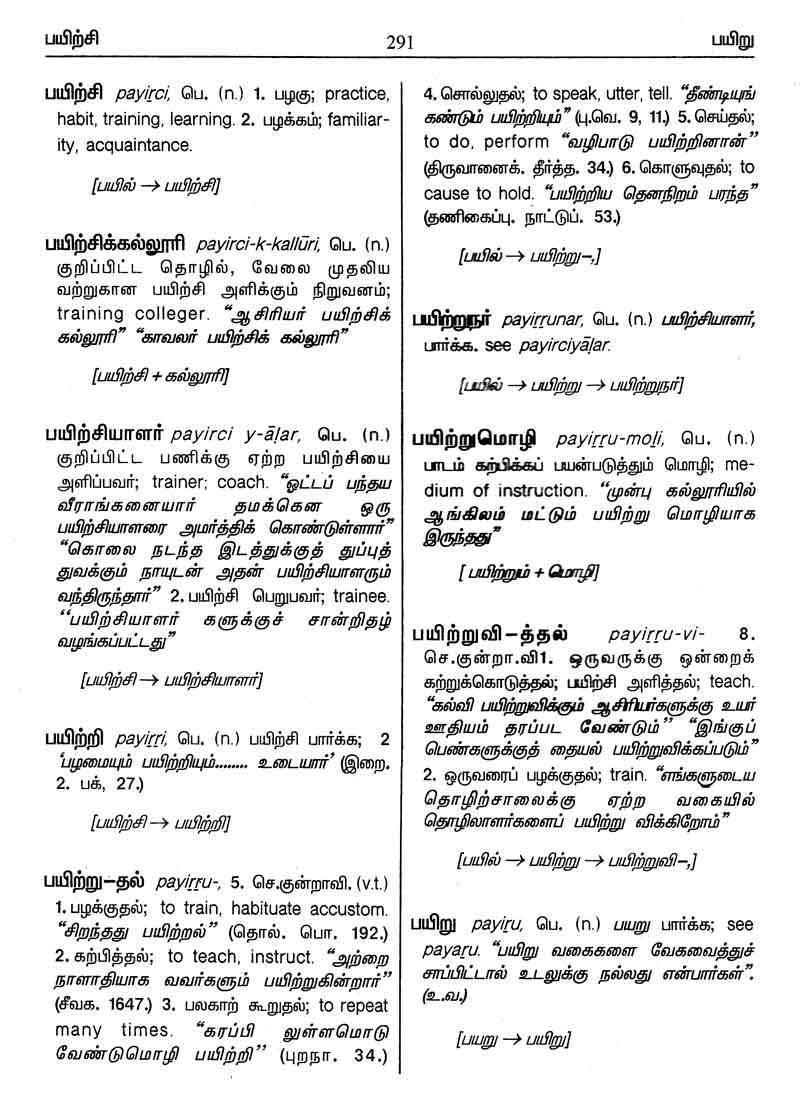 பயிற்சி
291
பயிறு
பயிற்சி payiṟci, பெ. (n.) 1. பழகு; practice,
habit, training, learning. 2. பழக்கம்; familiar-
ity, acquaintance.
[பயில் → பயிற்சி]
பயிற்சிக்கல்லூரி payirci-k-kallūri, பெ. (n.)
குறிப்பிட்ட தொழில், வேலை முதலிய
வற்றுகான பயிற்சி அளிக்கும் நிறுவனம்;
training colleger. “ஆசிரியர் பயிற்சிக்
கல்லூரி” “காவலர் பயிற்சிக் கல்லூரி”
[பயிற்சி + கல்லூரி]
பயிற்சியாளர் payirci y-āḷar, பெ. (n.)
குறிப்பிட்ட பணிக்கு ஏற்ற பயிற்சியை
அளிப்பவர்; trainer; coach. “ஓட்டப் பந்தய
வீராங்கனையார் தமக்கென ஒரு
பயிற்சியாளரை அமர்த்திக் கொண்டுள்ளார்”
“கொலை நடந்த இடத்துக்குத் துப்புத்
துவக்கும் நாயுடன் அதன் பயிற்சியாளரும்
வந்திருந்தார்” 2. பயிற்சி பெறுபவர்; trainee.
‘‘பயிற்சியாளர் களுக்குச் சான்றிதழ்
வழங்கப்பட்டது”
[பயிற்சி → பயிற்சியாளர்]
பயிற்றி payiṟṟi, பெ. (n.) பயிற்சி பார்க்க; 2
‘பழமையும் பயிற்றியும்........ உடையார்’ (இறை.
2. பக், 27.)
[பயிற்சி → பயிற்றி]
பயிற்று-தல் payiṟṟu-, 5. செ.குன்றாவி. (v.t.)
1. பழக்குதல்; to train, habituate accustom.
“சிறந்தது பயிற்றல்” (தொல். பொ. 192.)
2. கற்பித்தல்; to teach, instruct. “அற்றை
நாளாதியாக வவர்களும் பயிற்றுகின்றார்”
(சீவக. 1647.) 3. பலகாற் கூறுதல்; to repeat
many times. “கரப்பி லுள்ளமொடு
வேண்டுமொழி பயிற்றி’’ (புறநா. 34.)
4. சொல்லுதல்; to speak, utter, tell. “தீண்டியுங்
கண்டும் பயிற்றியும்” (பு.வெ. 9, 11.) 5. செய்தல்;
to do, perform “வழிபாடு பயிற்றினான்”
(திருவானைக். தீர்த்த. 34.) 6. கொளுவுதல்; to
cause to hold. “பயிற்றிய தெனநிறம் பரந்த”
(தணிகைப்பு. நாட்டுப். 53.)
[பயில் → பயிற்று-,]
பயிற்றுநர் payiṟṟunar, பெ. (n.) பயிற்சியாளர்,
பார்க்க. see payirciyāḷar.
[பயில் → பயிற்று → பயிற்றுநர்]
பயிற்றுமொழி payiṟṟu-moḻi, பெ. (n.)
பாடம் கற்பிக்கப் பயன்படுத்தும் மொழி; me-
dium of instruction. “முன்பு கல்லூரியில்
ஆங்கிலம் மட்டும் பயிற்று மொழியாக
இருந்தது”
[ பயிற்றும் + மொழி]
பயிற்றுவி-த்தல் payiṟṟu-vi- 8.
செ.குன்றா.வி1. ஒருவருக்கு ஒன்றைக்
கற்றுக்கொடுத்தல்; பயிற்சி அளித்தல்; teach.
“கல்வி பயிற்றுவிக்கும் ஆசிரியர்களுக்கு உயர்
ஊதியம் தரப்பட வேண்டும்” “இங்குப்
பெண்களுக்குத் தையல் பயிற்றுவிக்கப்படும்”
2. ஒருவரைப் பழக்குதல்; train. “எங்களுடைய
தொழிற்சாலைக்கு ஏற்ற வகையில்
தொழிலாளர்களைப் பயிற்று விக்கிறோம்”
[பயில் → பயிற்று → பயிற்றுவி-,]
பயிறு payiṟu, பெ. (n.) பயறு பார்க்க; see
payaṟu. “பயிறு வகைகளை வேகவைத்துச்
சாப்பிட்டால் உடலுக்கு நல்லது என்பார்கள்”.
(உ.வ.)
[பயறு → பயிறு]